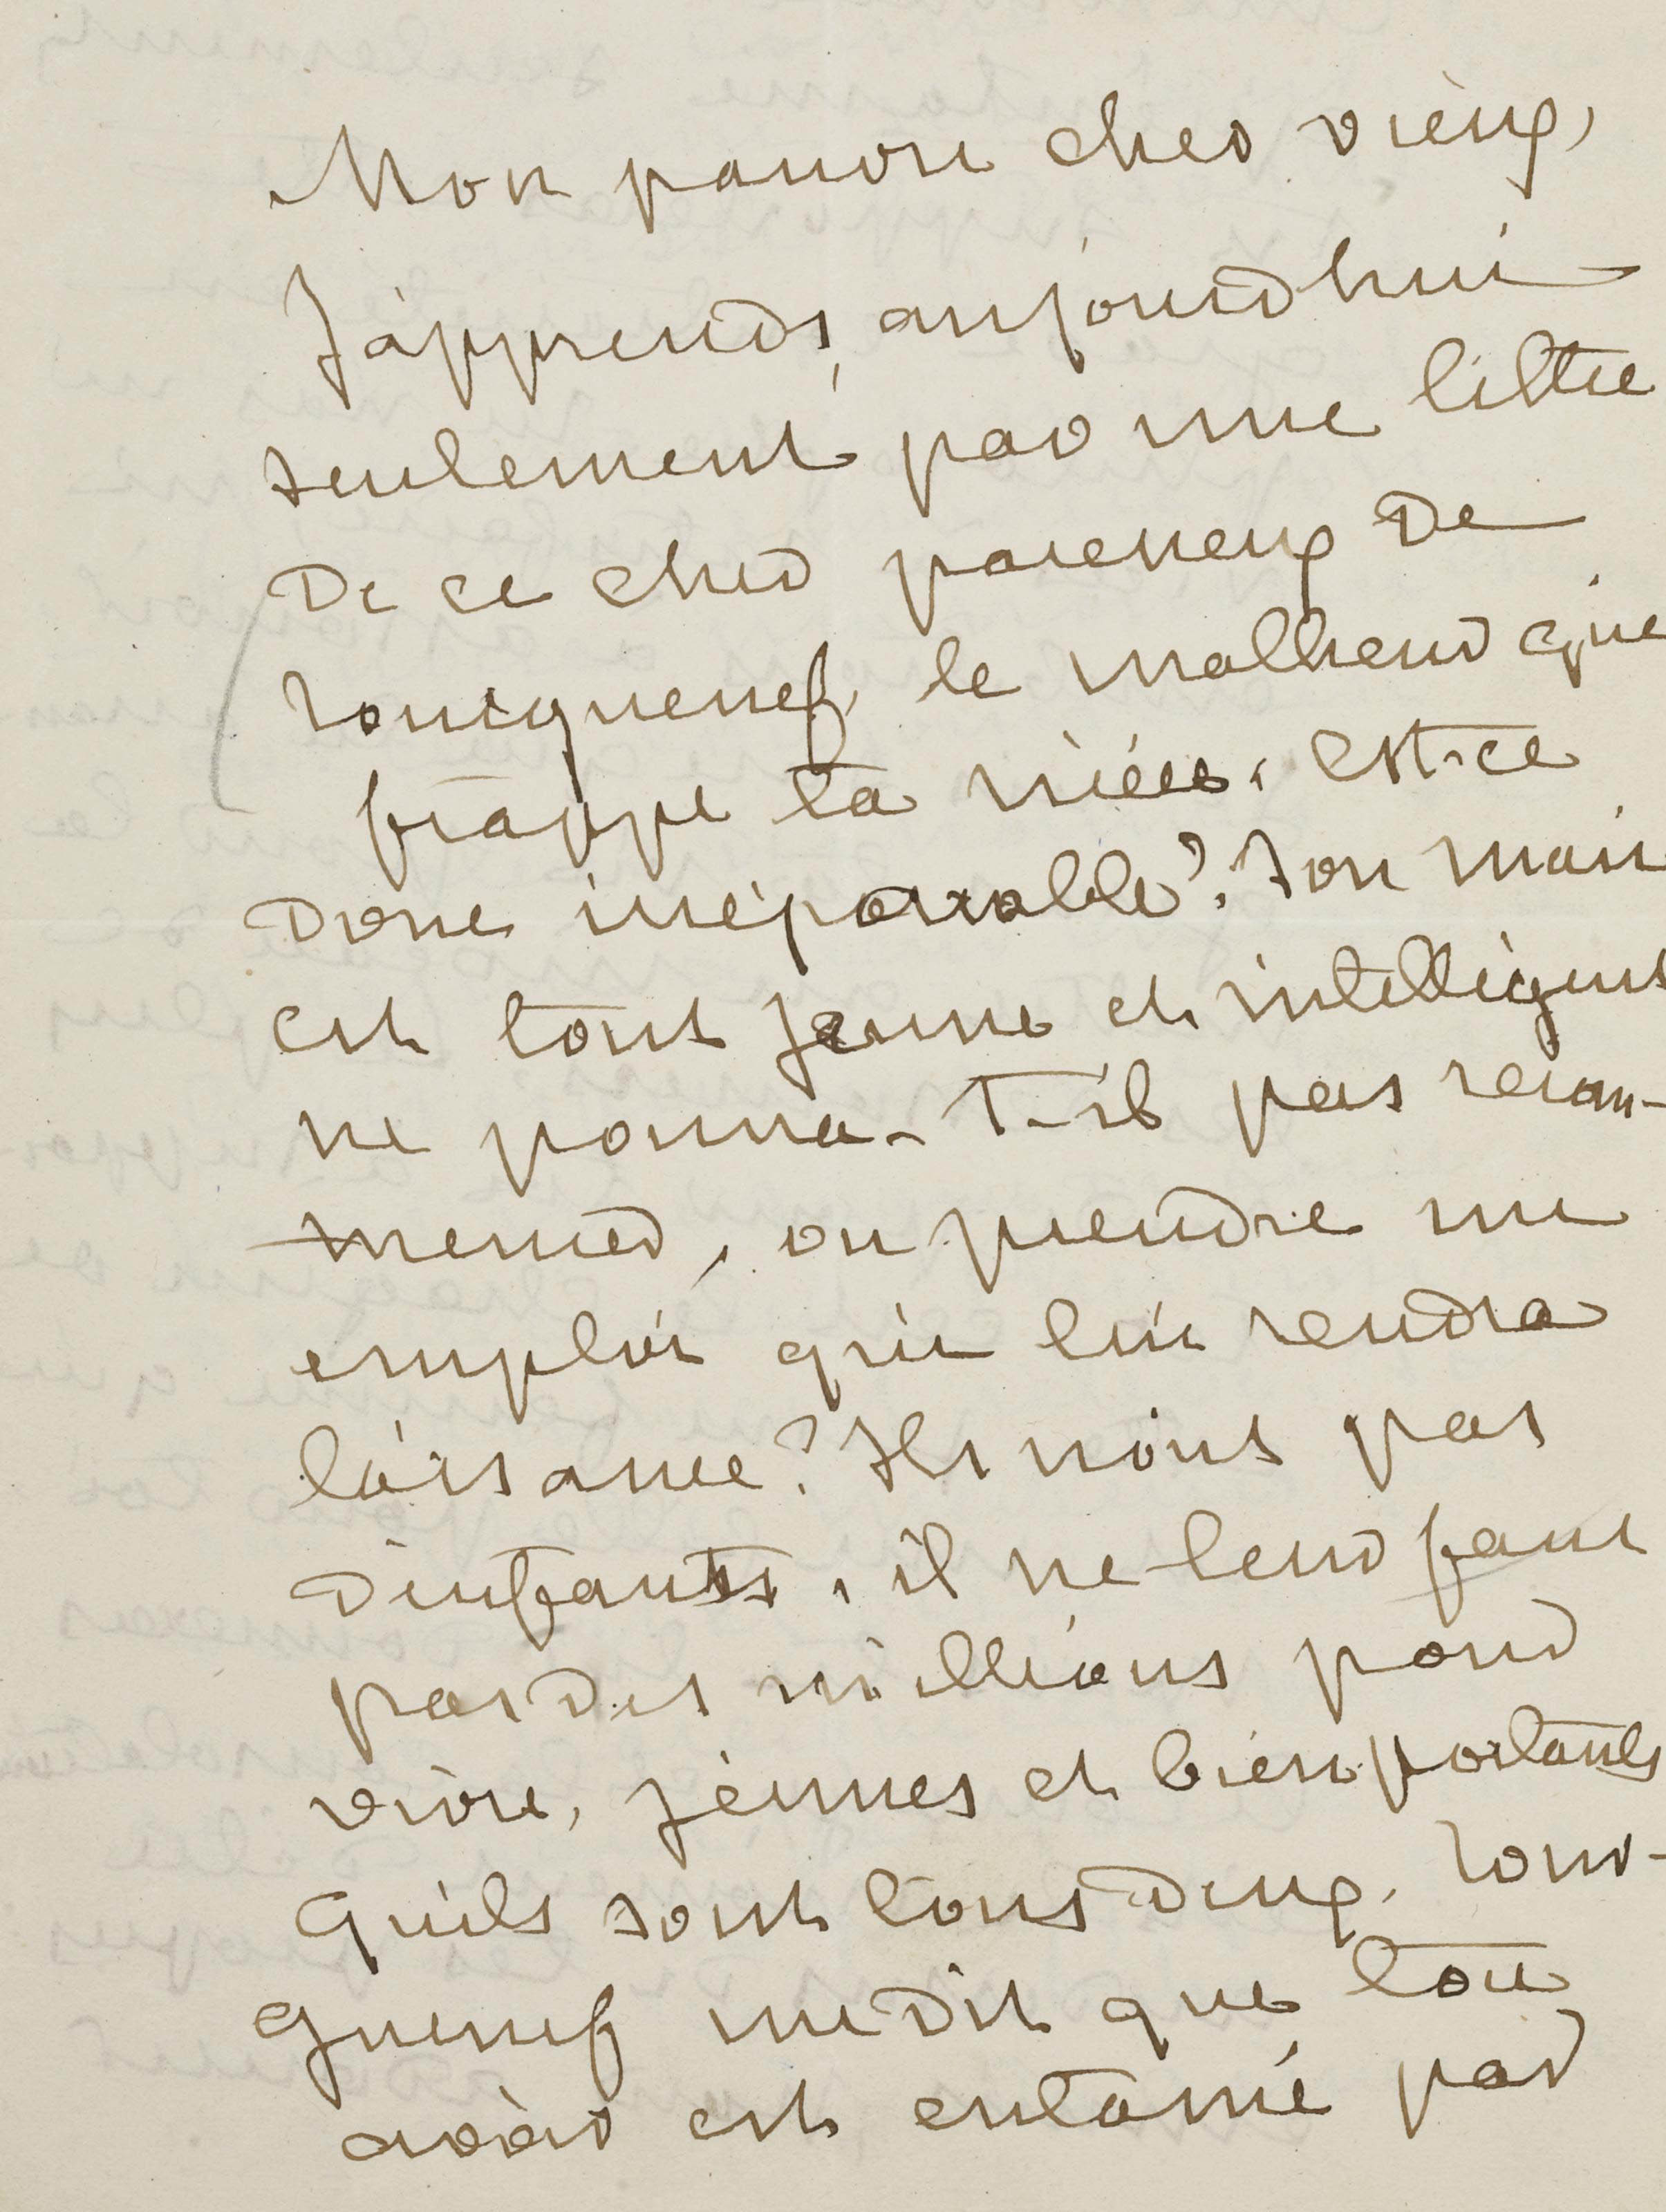 Mon pauvre cher vieux,
J'apprends, aujourd'hui
seulement, par une lettre
de ce cher paresseux de
Tourgueneff, le malheur qui
frappe ta nièce. Est-ce
donc irréparable? Son mari
est tout jeune et intelligent
ne pourra-t-il pas recom-
mencer, ou prendre un
emploi qui lui rendra
l'aisance? Ils n'ont pas
d'enfants, il ne leur faut
pas des millions pour
vivre, jeunes et bien portants
qu'ils sont tous deux. Tour-
gueneff me dit que ton
avoir est entamé par